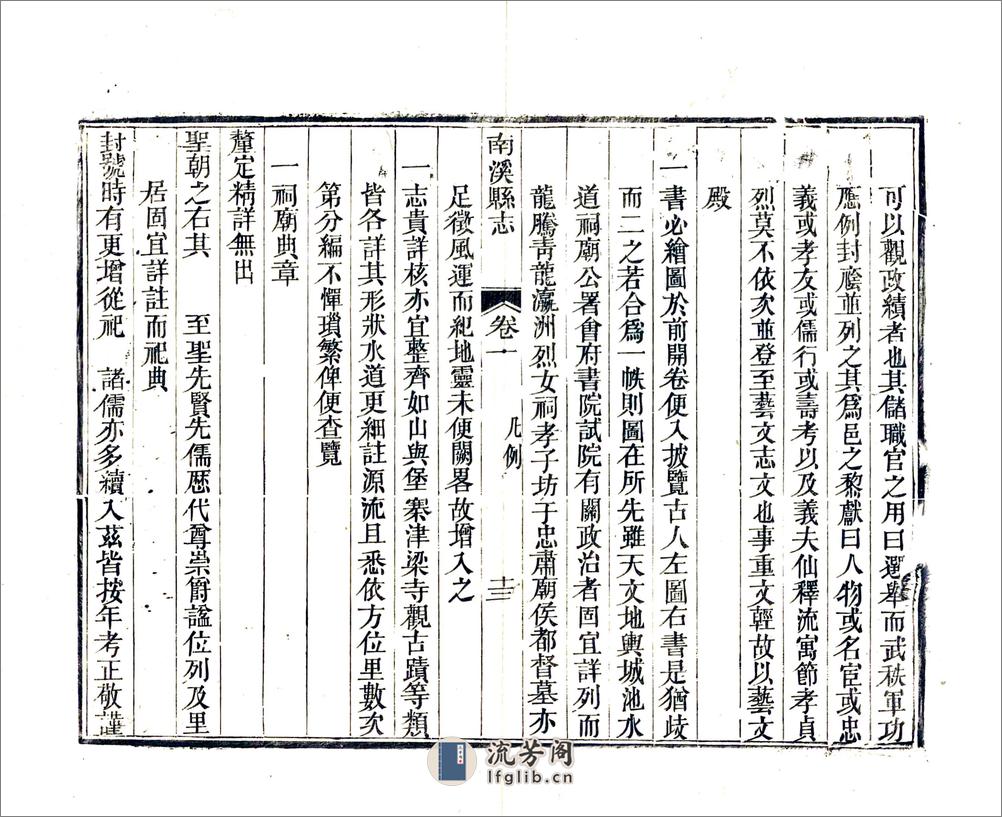 可以觀政績者也其儲職官之用曰選舉而武秩軍功
應例封廕並列之其爲邑之黎獻曰人物或名宦或忠
義或孝友或儒行或壽考以及義夫仙釋流寓節孝貞
烈莫不依次並登至藝文志文也事重文輕故以藝文
殿
一書必繪圖於前開卷便入披覽古人左圖右書是猶歧
而二之若合爲一帙則圖在所先雖天文地輿城池水
道祠廟公署會府書院試院有關政治者固宜詳列而
龍騰青龍瀛洲烈女祠孝子坊于忠肅廟侯都督墓亦
南溪縣志 卷一 凡例 十三
足徵風運而紀地靈未便闕畧故增入之
一志貴詳核亦宜整齊如山與堡寨津梁寺觀古蹟等類
皆各詳其形狀水道更細註源流且悉依方位里數次
第分編不憚瑣繁俾便查覽
一祠廟典章
釐定精詳無出
聖朝之右其 至聖先賢先儒歷代尊崇爵諡位列及里
居固宜詳註而祀典
封號時有更增從祀 諸儒亦多續入茲皆按年考正敬謹
流芳阁
lfglib.cn